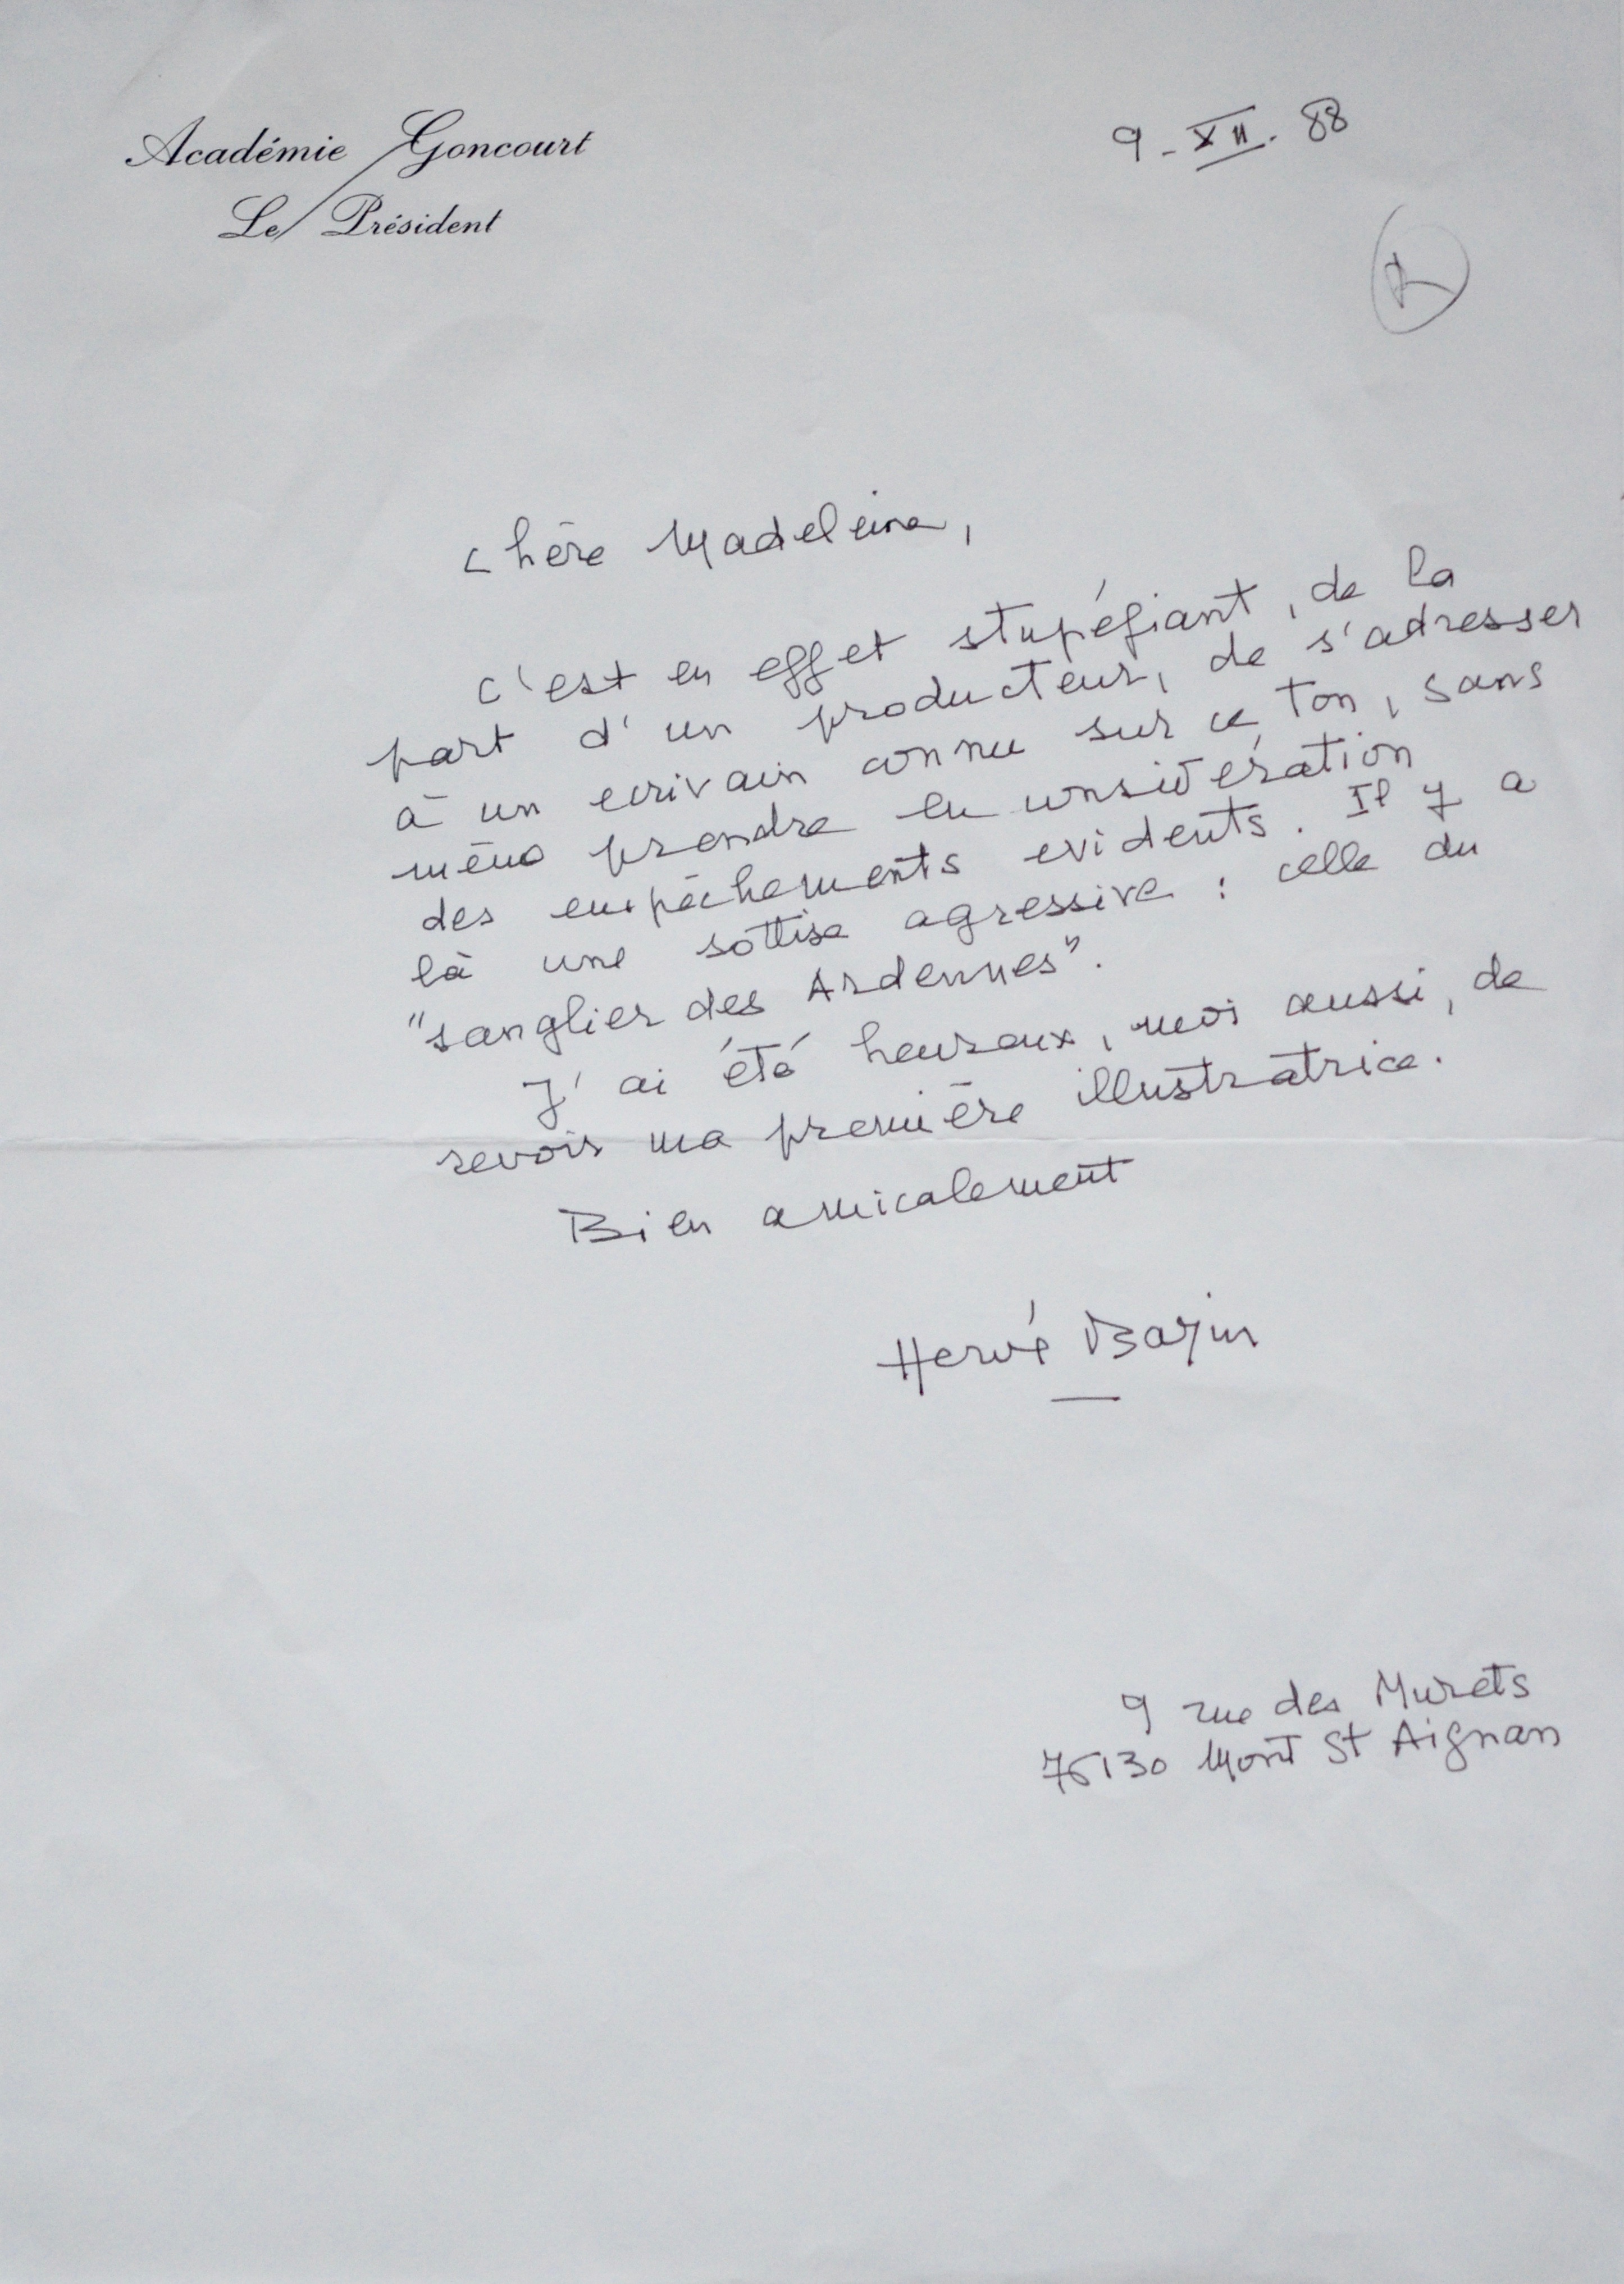 Académie Goncourt
Le Président
9 - XII. 88
R
Chère Madeleine,
C'est en effet stupéfiant, de la
part d'un producteur, de s'adresser
à un ecrivain connu sur ce ton, sans
même prendre en considération
des empêchements evidents. Il y a
là une sottise agressive : celle du
"sanglier des Ardennes".
J'ai été heureux, moi aussi, de
revoir ma première illustratrice.
Bien amicalement
Hervé Bazin
9 rue des Murets
76130 Mont St Aignan